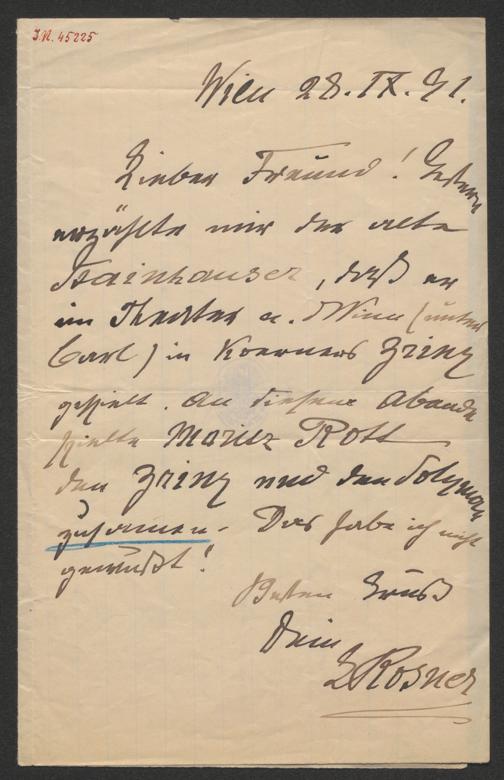 J.N. 45225
Wien 28. IX. 91.
Lieber Freund! Gestern
erzählte mir der alte
Stainhauser, daß er
im Theater a. d. Wien (unter
Carl) in Koerners Zriny
gespielt. An diesem Abende
spielte Moriz Rott
den Zriny und den Solyman
zusammen. Das habe ich nicht
gewußt!
Besten Gruß
Dein
L Rosner